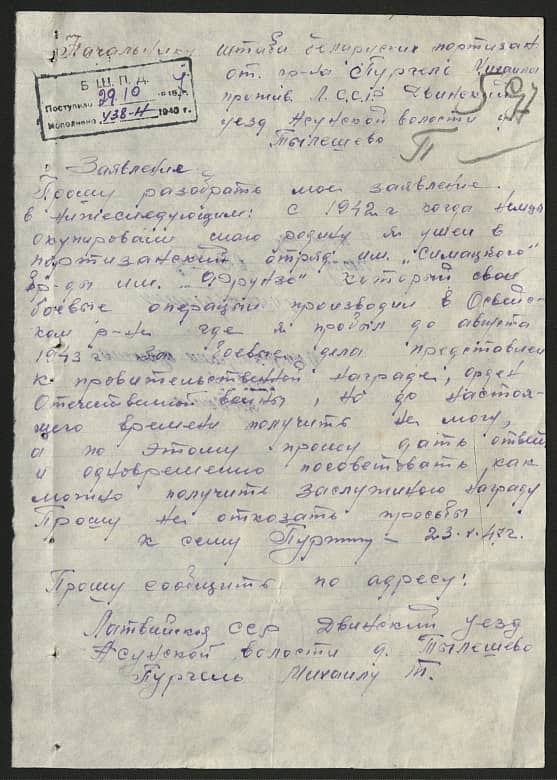 Начальнику штаба беларуских партизан
от гр-на Пургель Михаила
прожив. Л.С.С.Р Двинский
уезд Асунской волости д.
Тылешево
Б. Ш. П. Д.
Поступило 29.10 194 г.
Исполнено У38-Н 1940 г.
П
Заявление
Прошу разобрать мое заявление
в нижеследующим: с 1942 г когда немцы
окупировали мою родину я ушел в
партизанский отряд им. „Симацкого"
бр-ды им. „Фрунзе" который свои
боевые операции производил в Освейс-
ком р-не где я пробыл до августа
1943 г за боевые дела представлен
к правительственной награде, орден
Отечественной войны, но до настоя-
щего времени получить не могу,
а по этому прошу дать ответ
и одновременно посоветовать как
можно получить заслуженою награду
Прошу не отказать просьбы
к сему 23-X-47г.
Прошу сообщить по адресу:
Латвийская ССР Двинский уезд
Асунской волости д. Тылешево
Пургель Михаилу Т.